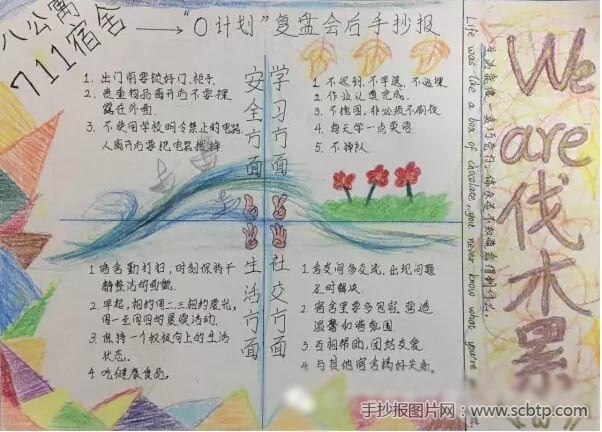 八公寓
711宿舍
"0计划"复盘会后手抄报
安全方面
1. 出门前要锁好门、柜子.
2. 贵重物品离开内不要裸
露在外面.
3. 不使用学校明令禁止的电器.
人离开内要把电器拔掉
学习方面
1. 不迟到.不早退.不逃课
2. 作业认真完成.
3. 不挂图,非必须不刷夜
4. 每天学一点英语
5. 不掉队.
生活方面
1. 宿舍勤打扫,时刻保持干
静整洁的面貌.
2. 早起,相约周二.三相约晨光,
周一至周四的晨读活动.
3. 保持一个积极向上的生活
状态.
4. 吃健康食品.
社交方面
1. 舍友间多交流,出现问题
及时解决.
2. 宿舍里要多包容.营造
温馨和谐氛围
3. 互相帮助,团结友爱
4. 与其他宿舍搞好关系.
Life was like a box of chocolate, you never know what you're
We
are
伐
木
累
手抄报图片网·www.scbtp.com